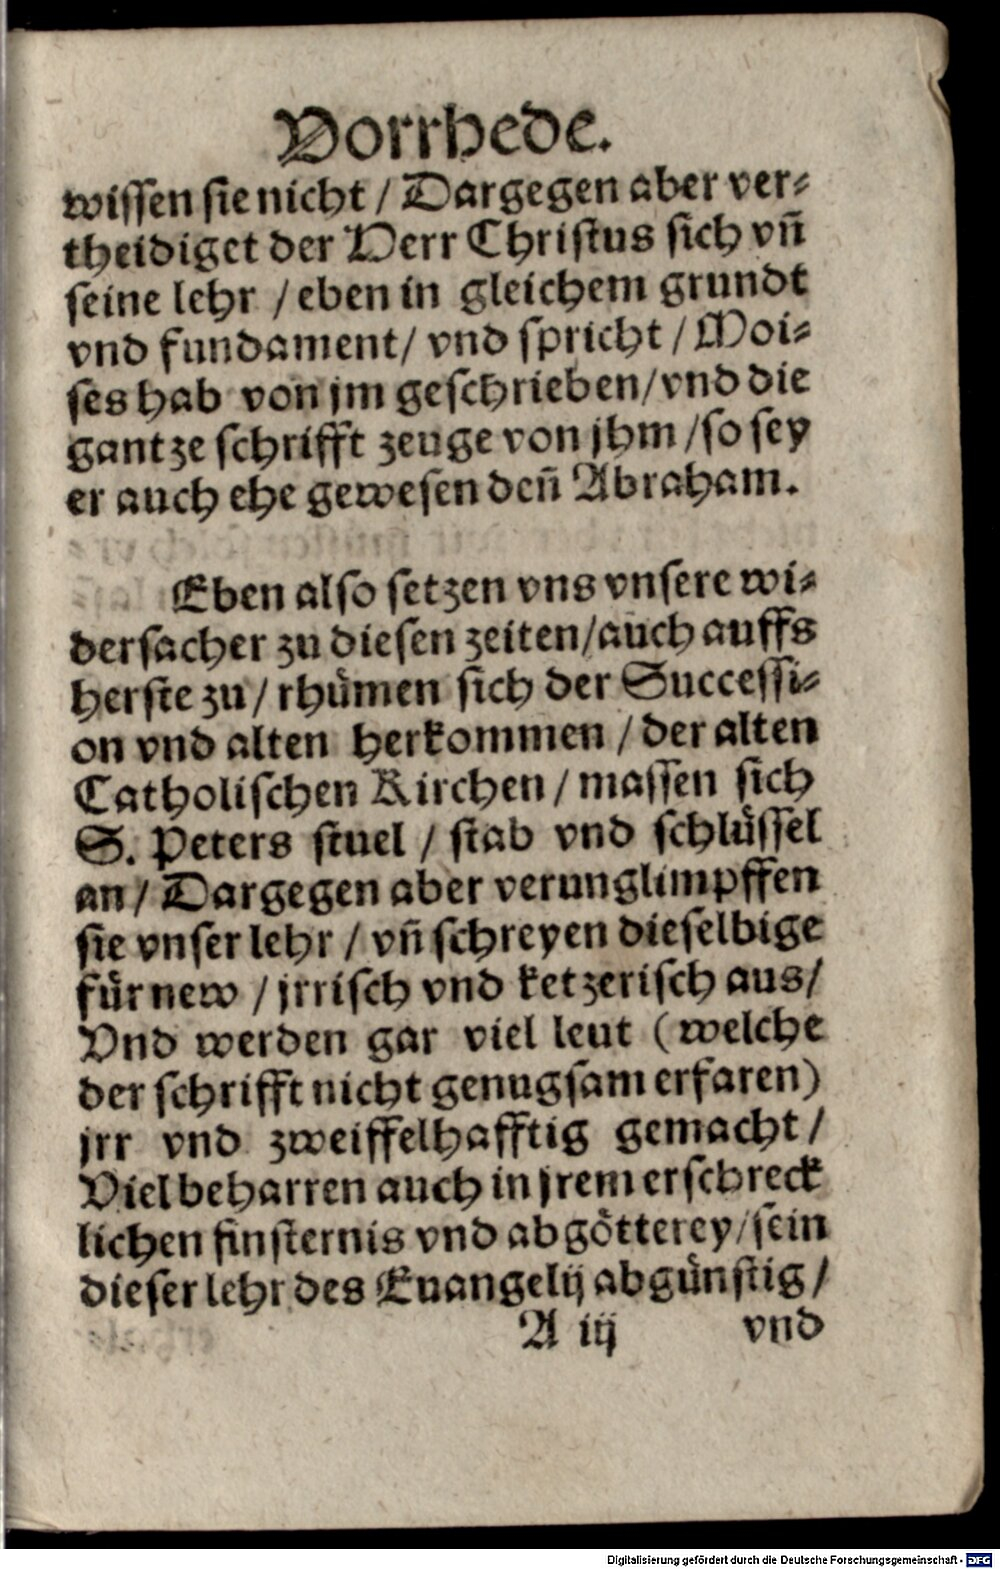 Vorrhede.
wissen sie nicht / Dargegen aber ver⸗
theidiget der Herr Christus sich vn̄
seine lehr / eben in gleichem grundt
vnd fundament / vnd spricht / Moi⸗
ses hab von jm geschrieben / vnd die
gantze schrifft zeuge von jhm / so sey
er auch ehe gewesen den̄ Abraham.
Eben also setzen vns vnsere wi⸗
dersacher zu diesen zeiten / auch auffs
herste zu / rhümen sich der Successi⸗
on vnd alten herkommen / der alten
Catholischen Kirchen / massen sich
S. Peters stuel / stab vnd schlüssel
an / Dargegen aber verunglimpffen
sie vnser lehr / vn̄ schreyen dieselbige
für new / jrrisch vnd ketzerisch aus /
Vnd werden gar viel leut (welche
der schrifft nicht genugsam erfaren)
jrr vnd zweiffelhafftig gemacht /
Viel beharren auch in jrem erschreck
lichen finsternis vnd abgötterey / sein
dieser lehr des Euangelij abgünstig /
A iij vnd
Digitalisierung gefördert durch die Deutsche Forschungsgemeinschaft - DFG